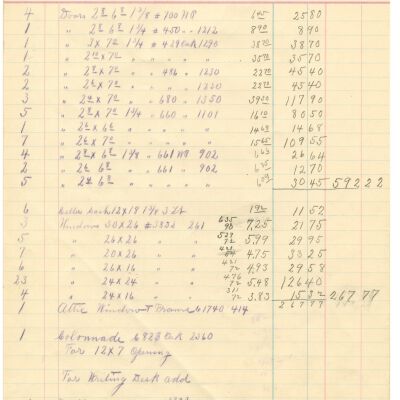 4 Doors 2 8 6 8 1 3/8 # 700 WP 6 45 25 80
1 " 2 8 6 8 1 3/4 # 450 " 1212 8 90 8 90
1 " 3 x 7 0 1 3/4 # 429 Oak 1290 38 70 38 70
1 " 2 10 x 7 0 " " " " 35 70 35 70
2 " 2 8 x 7 0 " " 486 " 1230 22 70 45 40
2 " " " " " 1220 22 70 45 40
3 " 2 6 x 7 0 " " 680 " 1350 39 30 117 90
5 " 2 8 x 7 0 1 3/4 " 660 " 1101 16 10 80 50
1 " 2 6 x 6 6 " " " " 14 68 14 68
7 " 2 4 x 7 0 " " " " 15 65 109 55
4 " 2 8 x 6 8 1 3/8 " 661 WP 902 6 63 26 64
2 " 2 6 6 8 " " 661 " 902 6 45 12 70
5 " 2 4 6 8 " " " 30 45 592 22
6 Cellar Sash 12 x 18 1 3/8 3 Lt 1 92 11 52
3 Windows 30 x 26 # 3832 261 635 90 7.25 21 75
5 " 26 x 26 " 529 72 5.99 29 95
7 " 20 x 26 " 421 4.75 33 25
6 " 26 x 16 " 421 72 4.93 29 58
23 " 24 x 24 " 476 72 5.48 126 40
4 " 24 x 16 " 311 72 3.83 15 32 267 77
1 Attic Window & Frame 61740 414 267 77
1 Colonnade 6823 Oak 2360
For 12 x 7 Opening
For Writing Desk add